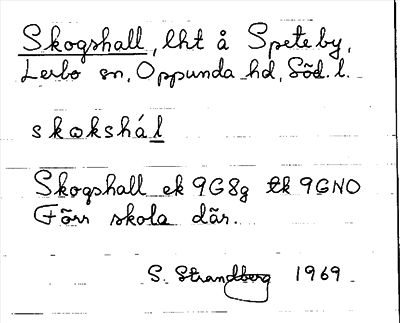 Skogshall, lht å Speteby,
Lerbo sn, Oppunda hd, Söd. l.
skokshál
Skogshall ek 9G8g tk 9GNO
Förr skola där.
S. Strandberg 1969